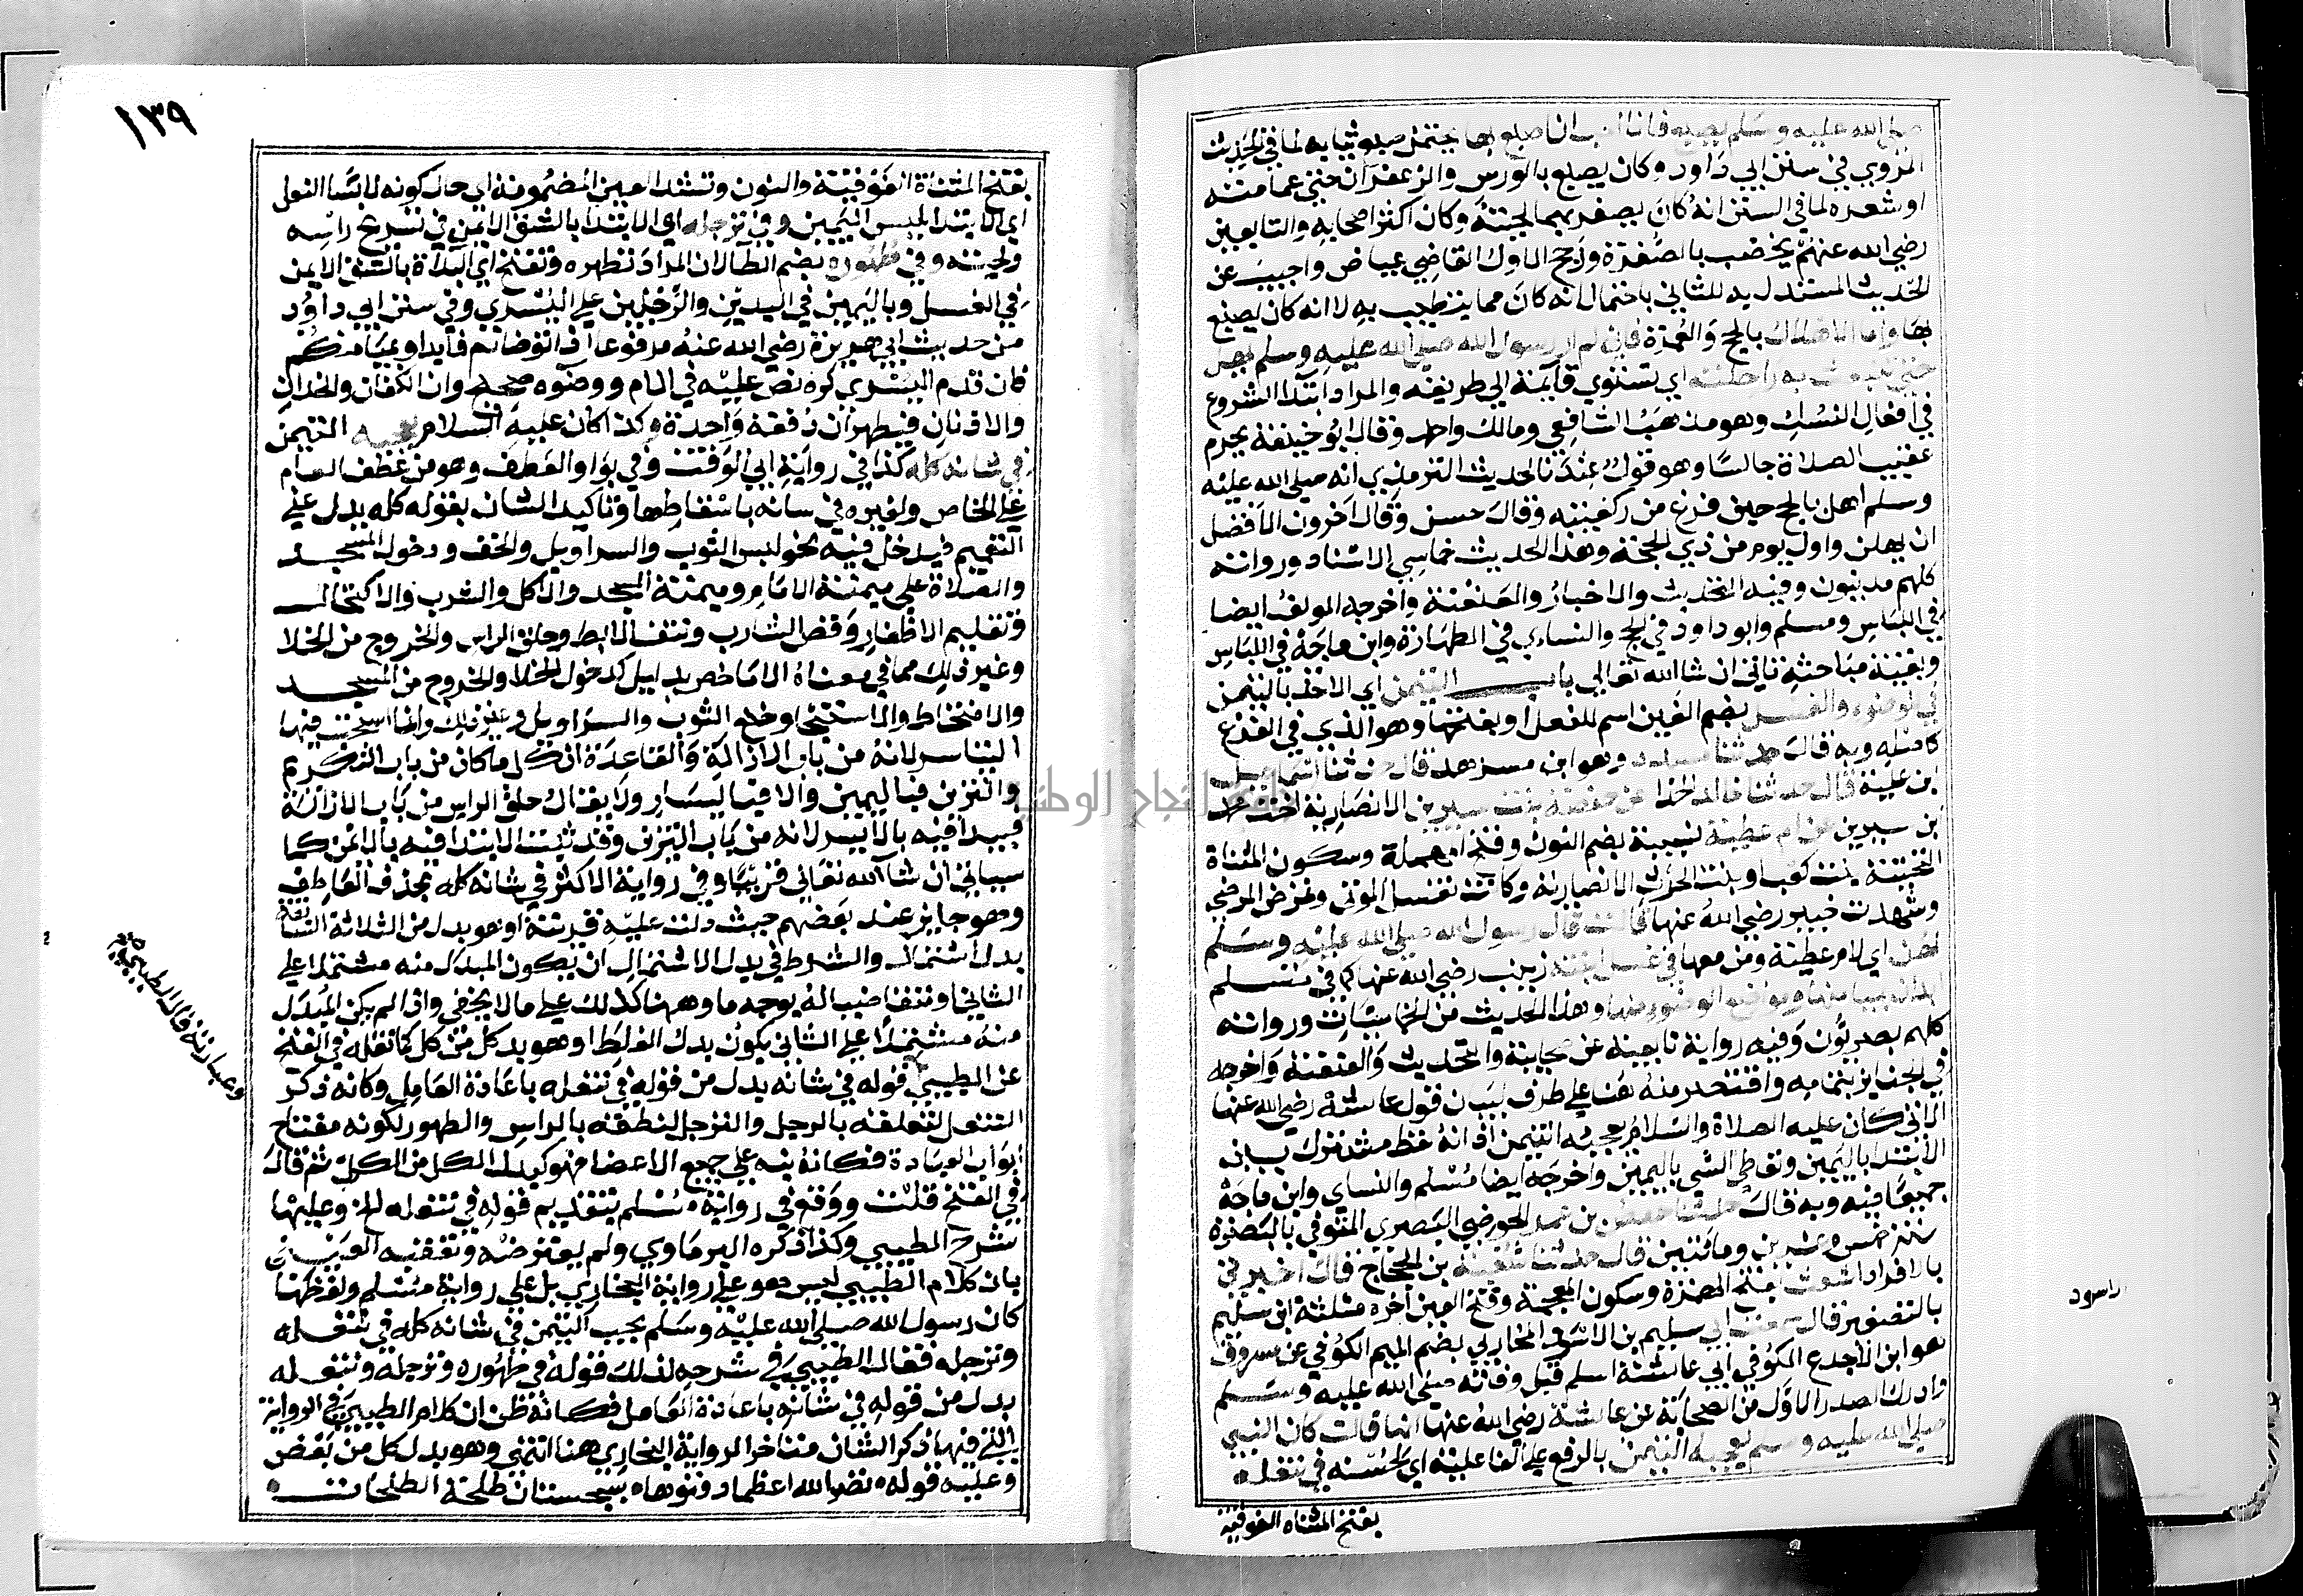 صلى الله عليه وسلم يصبغ فانا احب ان اصبغ بها يحتمل صبغ ثيابه لما في الحديث
المروي في سنن ابي داود وكان يصبغ بالورس والزعفران حتى عمامته
او شعره لما في السنن انه كان يصفر بهما لحيته وكان اكثر اصحابه والتابعين
رضي الله عنهم يخضب بالصفرة ورجح الاول القاضي عياض واجيب عن
الحديث المستدل به للثاني باحتمال انه كان مما يتطيب به لا انه كان يصبغ
بها واما الاهلال بالحج والعمرة فاني لم ار رسول الله صلى الله عليه وسلم يهل
حتى تنبعث به راحلته اي تستوي قايمة الي طريقه والمراد ابتدا الشروع
في افعال النسك وهو مذهب الشافعي ومالك واحمد وقال ابو حنيفة يحرم
عقيب الصلاة جالسا وهو قول عندنا لحديث الترمذي انه صلى الله عليه
وسلم اهل بالحج حين فرغ من ركعتيه وقال حسن وقال اخرون الافضل
ان يهل من اول يوم من ذي الحجة وهذا الحديث خماسي الاسناد ورواته
كلهم مدنيون وفيه التحديث والاخبار والعنعنة واخرجه المولف ايضا
في اللباس ومسلم وابو داود في الحج والنساي في الطهارة وابن ماجة في اللباس
وبقية مباحثه تاتي ان شا الله تعالي باب التيمن اي الاخذ باليمين
في الوضوء والغسل بضم الغين اسم للفعل او بفتحها وهو الذي في الفرع
كاصله وبه قال حدثنا مسدد وهو ابن مسرهد قال حدثنا اسماعيل
ابن علية قال حدثنا خالد الحذا عن حفصة بنت سيرين الانصارية اخت محمد
بن سيرين عن ام عطية نسيبة بضم النون وفتح المهملة وسكون المثناة
التحتية بنت كعب او بنت الحرث الانصارية وكانت تغسل الموتى وتمرض المرضي
وشهدت خيبر رضي الله عنها قالت قال رسول الله صلى الله عليه وسلم
لهن اي لام عطية ومن معها في غسل ابنته زينب رضي الله عنها كما في مسلم
ابدان بميامنها ومواضع الوضوء منها وهذا الحديث من الخماسيات ورواته
كلهم بصريون وفيه رواية تابعية عن صحابية والتحديث والعنعنة واخرجه
في الجنايز بتمامه واقتصر منه هنا على طرف لبيان قول عائشة رضي الله عنها
الاتي كان عليه الصلاة والسلام يعجبه التيمن اذ انه لفظ مشترك بين
الابتدا باليمين وتعاطي الشي باليمين واخرجه ايضا مسلم والنساي وابن ماجة
جميعا فيه وبه قال حدثنا حفص بن عمر الحوضي البصري المتوفي بالبصرة
سنة خمس وعشرين ومائتين قال حدثنا شعبة بن الحجاج قال اخبرني
بالافراد اشعث بفتح الهمزة وسكون المعجمة وفتح العين اخره مثلثة ابن سليم
بالتصغير قال سمعت ابي سليم بن الاسود المحاربي بضم الميم الكوفي عن مسروق
هو ابن الاجدع الكوفي ابي عائشة اسلم قبل وفاته صلى الله عليه وسلم
وادرك الصدر الاول من الصحابة عن عائشة رضي الله عنها انها قالت كان النبي
صلى الله عليه وسلم يعجبه التيمن بالرفع على الفاعلية اي لحسنه في تنعله
بفتح المثناه الفوقية
الاسود
١٣٩
بفتح المثناة الفوقية والنون وتشديد العين المضمومة اي حال كونه لابسا النعل
اي الابتدا بلبس اليمين وفي ترجله اي الابتدا بالشق الايمن في تسريح راسه
ولحيته وفي طهوره بضم الطا لان المراد تطهره وتفتح اي البداة بالشق الايمن
في الغسل وباليمين في اليدين والرجلين على اليسري وفي سنن ابي داود
من حديث ابي هريرة رضي الله عنه مرفوعا اذا توضاتم فابداوا بميامنكم
فان قدم اليسري كره نص عليه في الام ووضوه صحيح وان الكفان والخدان
والاذنان فيطهران دفعة واحدة وكذا كان عليه السلام يعجبه التيمن
في شانه كله كذا في رواية ابي الوقت وفي بواو العطف وهو من عطف العام
على الخاص ولغيره في شانه باسقاطها وتاكيد الشان بقوله كله يدل على
التعميم فيدخل فيه نحو لبس الثوب والسراويل والخف ودخول المسجد
والصلاة على ميمنة الامام وميمنة المسجد والاكل والشرب والاكتحال
وتقليم الاظفار وقص الشارب ونتف الابط وحلق الراس والخروج من الخلا
وغير ذلك مما في معناه الا ما خص بدليل كدخول الخلا والخروج من المسجد
والامتخاط والاستنجا وخلع الثوب والسراويل وغير ذلك وانما استحب فيها
التياسر لانه من باب الازالة والقاعدة ان كل ما كان من باب التكريم
والتزين فباليمين والا فباليسار ولا يقال حلق الراس من باب الازالة
فيبدا فيه بالايسر لانه من باب التزين وقد ثبت الابتدا فيه بالايمن كما
سياتي ان شا الله تعالي قريبا وفي رواية الاكثر في شانه كله بحذف العاطف
وهو جايز عند بعضهم حيث دلت عليه قرينة او هو بدل من الثلاثة السابقة
بدل اشتمال والشرط في بدل الاشتمال ان يكون المبدل منه مشتملا على
الثاني او متقاضيا له بوجه ما وههنا كذلك على ما لا يخفي واذا لم يكن المبدل
منه مشتملا على الثاني يكون بدل الغلط او هو بدل كل من كل كما نقله في الفتح
عن الطيبي قوله في شانه بدل من قوله في تنعله باعادة العامل وكانه ذكر
التنعل لتعلقه بالرجل والترجل لتعلقه بالراس والطهور لكونه مفتاح
ابواب العبادة فكانه نبه على جميع الاعضا فهو كبدل الكل من الكل ثم قال
في الفتح قلت ووقع في رواية مسلم بتقديم قوله في شانه كله وعليها
شرح الطيبي وكذا ذكره البرماوي ولم يعترضه وتعقبه العيني
بان كلام الطيبي ليس هو على رواية البخاري بل على رواية مسلم ولفظها
كان رسول الله صلى الله عليه وسلم يحب التيمن في شانه كله في تنعله
وترجله فقال الطيبي في شرحه لذلك قوله في طهوره وترجله وتنعله
بدل من قوله في شانه باعادة العامل فكانه ظن ان كلام الطيبي في الرواية
التي فيها ذكر الشان متاخر الرواية البخاري هنا انتهي وهو بدل كل من بعض
وعليه قوله نضر الله اعظما دفنوها بسجستان طلحة الطلحات
وعبارته قال الطيبي